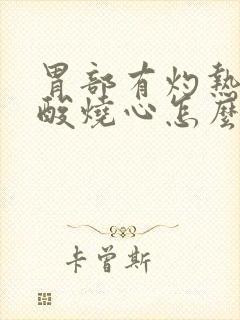 胃部有灼熱
酸燒心怎麼
卡曾斯